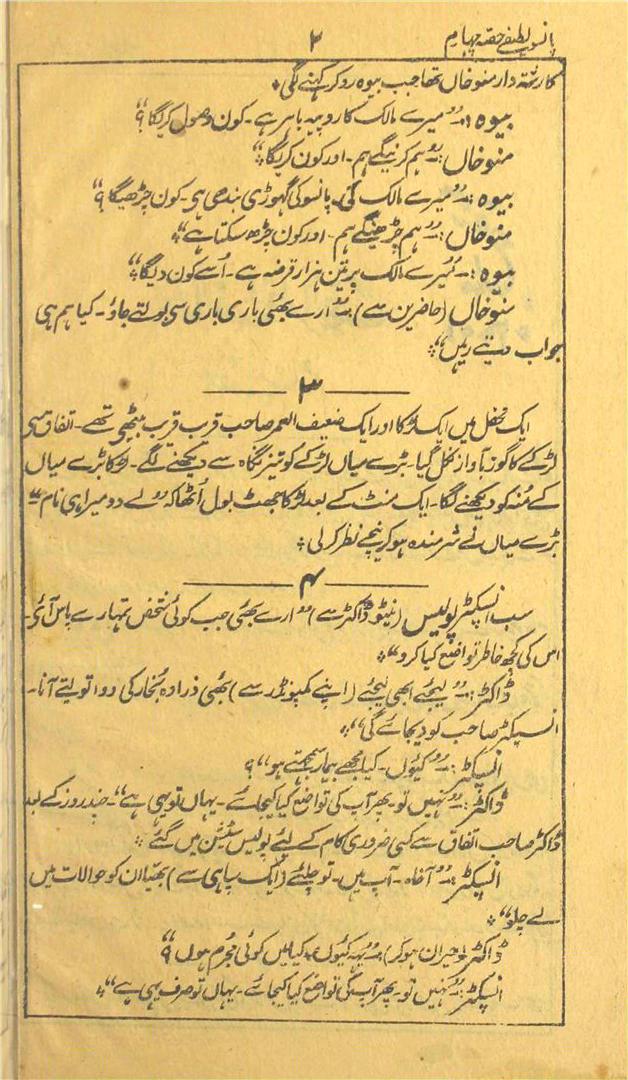 پانسو لطیفے حصہ چہارم ۲
کا رشتہ دار منو خاں تھا جب بیوہ رو کر کہنے لگی۔
بیوہ :۔ "میرے مالک کا روپیہ باہر ہے۔ کون وصول کریگا؟"
منو خاں :۔ "ہم کرینگے ہم۔ اور کون کریگا"۔
بیوہ :۔ "میرے مالک کی پانسو کی گھوڑی بندھی ہی۔ کون چڑھیگا؟"
منو خاں :۔ "ہم چڑھینگے ہم۔ اور کون چڑھ سکتا ہے"۔
بیوہ :۔ "میرے مالک پر تین ہزار قرضہ ہے۔ اُسے کون دیگا"؟
منو خاں (حاضرین سے) :۔ "ارے بھئی باری باری سی بولتے جاؤ۔ کیا ہم ہی
جواب دیتے رہیں"۔
۳
ایک محفل میں ایک لڑکا اور ایک ضعیف العمر صاحب قریب قریب بیٹھی تھے۔ اتفاق سی
لڑکے کا گوز بآواز نکل گیا۔ بڑے میاں لڑکے کو تیز نگاہ سے دیکھنے لگے۔ لڑکا بڑے میاں
کے مُنہ کو دیکھنے لگا۔ ایک منٹ کے بعد لڑکا جھٹ بول اُٹھا کہ "لے دو میرا ہی نام"
بڑے میاں نے شرمندہ ہو کر نیچے نظر کر لی۔
۴
سب انسپکٹر پولیس (نیٹو ڈاکٹر سے) "ارے بھئی جب کوئی شخص تمہارے پاس آئی۔
اس کی کچھ خاطر تواضع کیا کرو"۔
ڈاکٹر :۔ "لیجئے ابھی لیجئے (اپنے کمپونڈر سے) بھئی ذرا وہ بُخار کی دوا تو لیتے آنا۔
انسپکٹر صاحب کو دیجائے گی"۔
انسپکٹر :۔ "کیوں۔ کیا مجھے بیمار سمجھتے ہو"؟
ڈاکٹر :۔ "نہیں تو۔ پھر آپ کی تواضع کیا کیجائے۔ یہاں تو یہی ہے"۔ چند روز کے بعد
ڈاکٹر صاحب اتفاق سے کسی ضروری کام کے لیئے پولیس سٹیشن میں گئے۔
انسپکٹر :۔ "آخاہ۔ آپ ہیں۔ تو چلئے (ایک سپاہی سے) بھیّا ان کو حوالات میں
لے چلو"۔
ڈاکٹر (حیران ہو کر) :۔ "یہ کیوں؟ کیا میں کوئی مُجرم ہوں؟"
انسپکٹر :۔ "نہیں تو۔ پھر آپ کی تواضع کیا کیجائے۔ یہاں تو صرف یہی ہے"۔